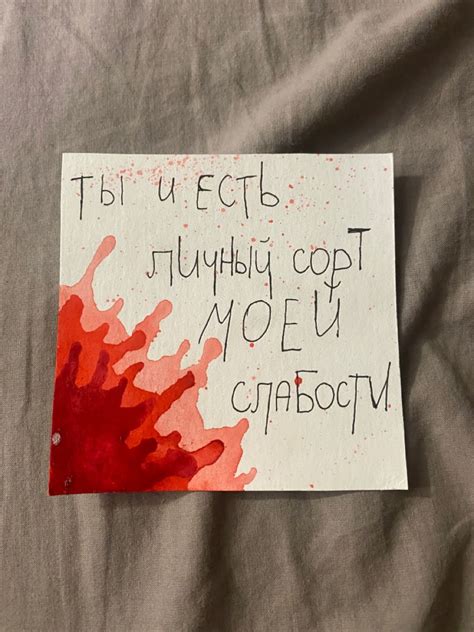 ты и есть
личный сорт
моей
слабости